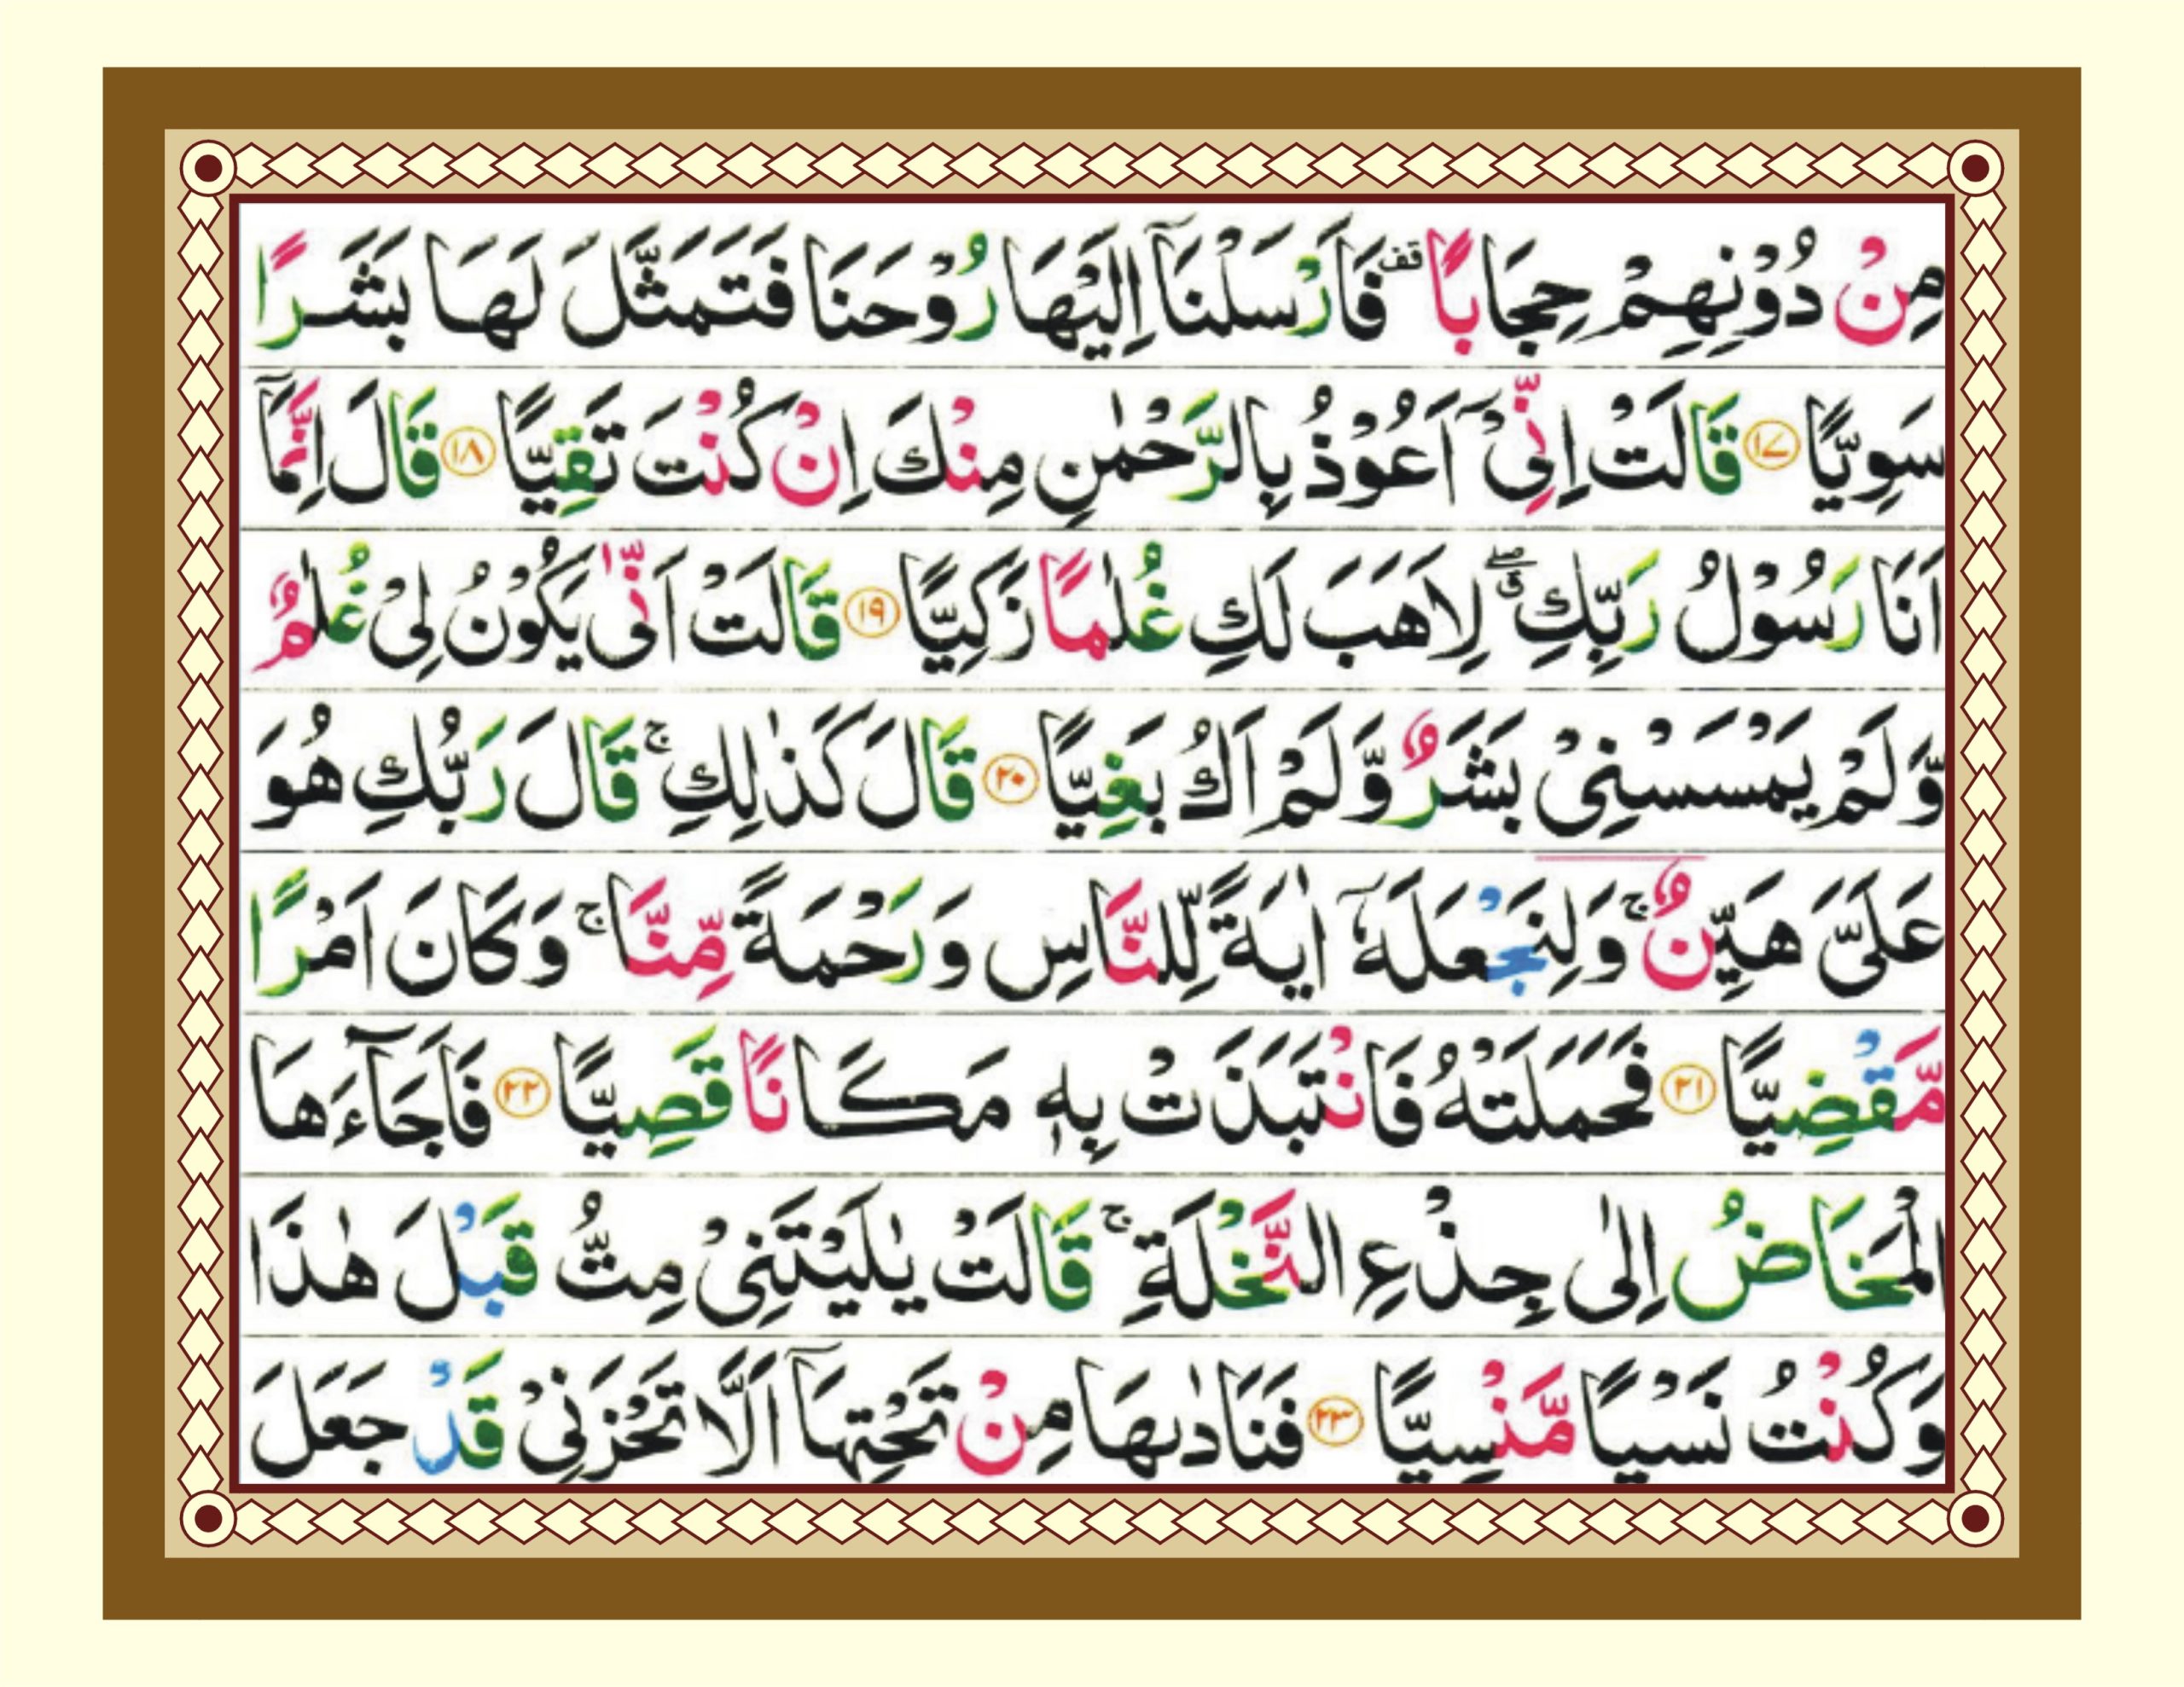 مِنْ دُوْنِهِمْ حِجَابًا ۪قف فَاَرْسَلْنَاۤ اِلَيْهَا رُوْحَنَا فَتَمَثَّلَ لَهَا بَشَرًا
سَوِيًّا ۝۱۷ قَالَتْ اِنِّىْۤ اَعُوْذُ بِالرَّحْمٰنِ مِنْكَ اِنْ كُنْتَ تَقِيًّا ۝۱۸ قَالَ اِنَّمَاۤ
اَنَا رَسُوْلُ رَبِّكِ ۖق لِاَهَبَ لَكِ غُلٰمًا زَكِيًّا ۝۱۹ قَالَتْ اَنّٰى يَكُوْنُ لِىْ غُلٰمٌ
وَّلَمْ يَمْسَسْنِىْ بَشَرٌ وَّلَمْ اَكُ بَغِيًّا ۝۲۰ قَالَ كَذٰلِكِ ۚ قَالَ رَبُّكِ هُوَ
عَلَىَّ هَيِّنٌ ۚ وَلِنَجْعَلَهٗۤ اٰيَةً لِّلنَّاسِ وَرَحْمَةً مِّنَّا ۚ وَكَانَ اَمْرًا
مَّقْضِيًّا ۝۲۱ فَحَمَلَتْهُ فَانْتَبَذَتْ بِهٖ مَكَانًا قَصِيًّا ۝۲۲ فَاَجَآءَهَا
الْمَخَاضُ اِلٰى جِذْعِ النَّخْلَةِ ۚ قَالَتْ يٰلَيْتَنِىْ مِتُّ قَبْلَ هٰذَا
وَكُنْتُ نَسْيًا مَّنْسِيًّا ۝۲۳ فَنَادٰىهَا مِنْ تَحْتِهَاۤ اَلَّا تَحْزَنِىْ قَدْ جَعَلَ